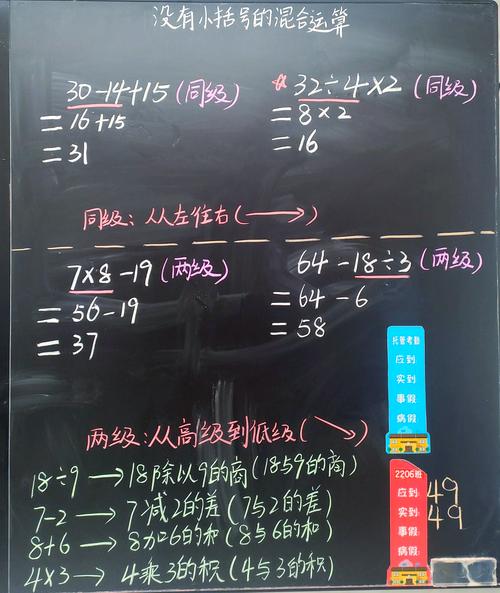 没有小括号的混合运算
30-14+15(同级)
=16+15
=31
*32÷4×2(同级)
=8×2
=16
同级：从左往右(→)
7×8-19(两级)
=56-19
=37
64-18÷3(两级)
=64-6
=58
两级：从高级到低级(↘)
18÷9→18除以9的商(18与9的商)
7-2→7减2的差(7与2的差)
8+6→8加6的和(8与6的和)
4×3→4乘3的积(4与3的积)
托管考勤
应到
实到
事假
病假
2206班
应到 49
实到 49
事假
病假